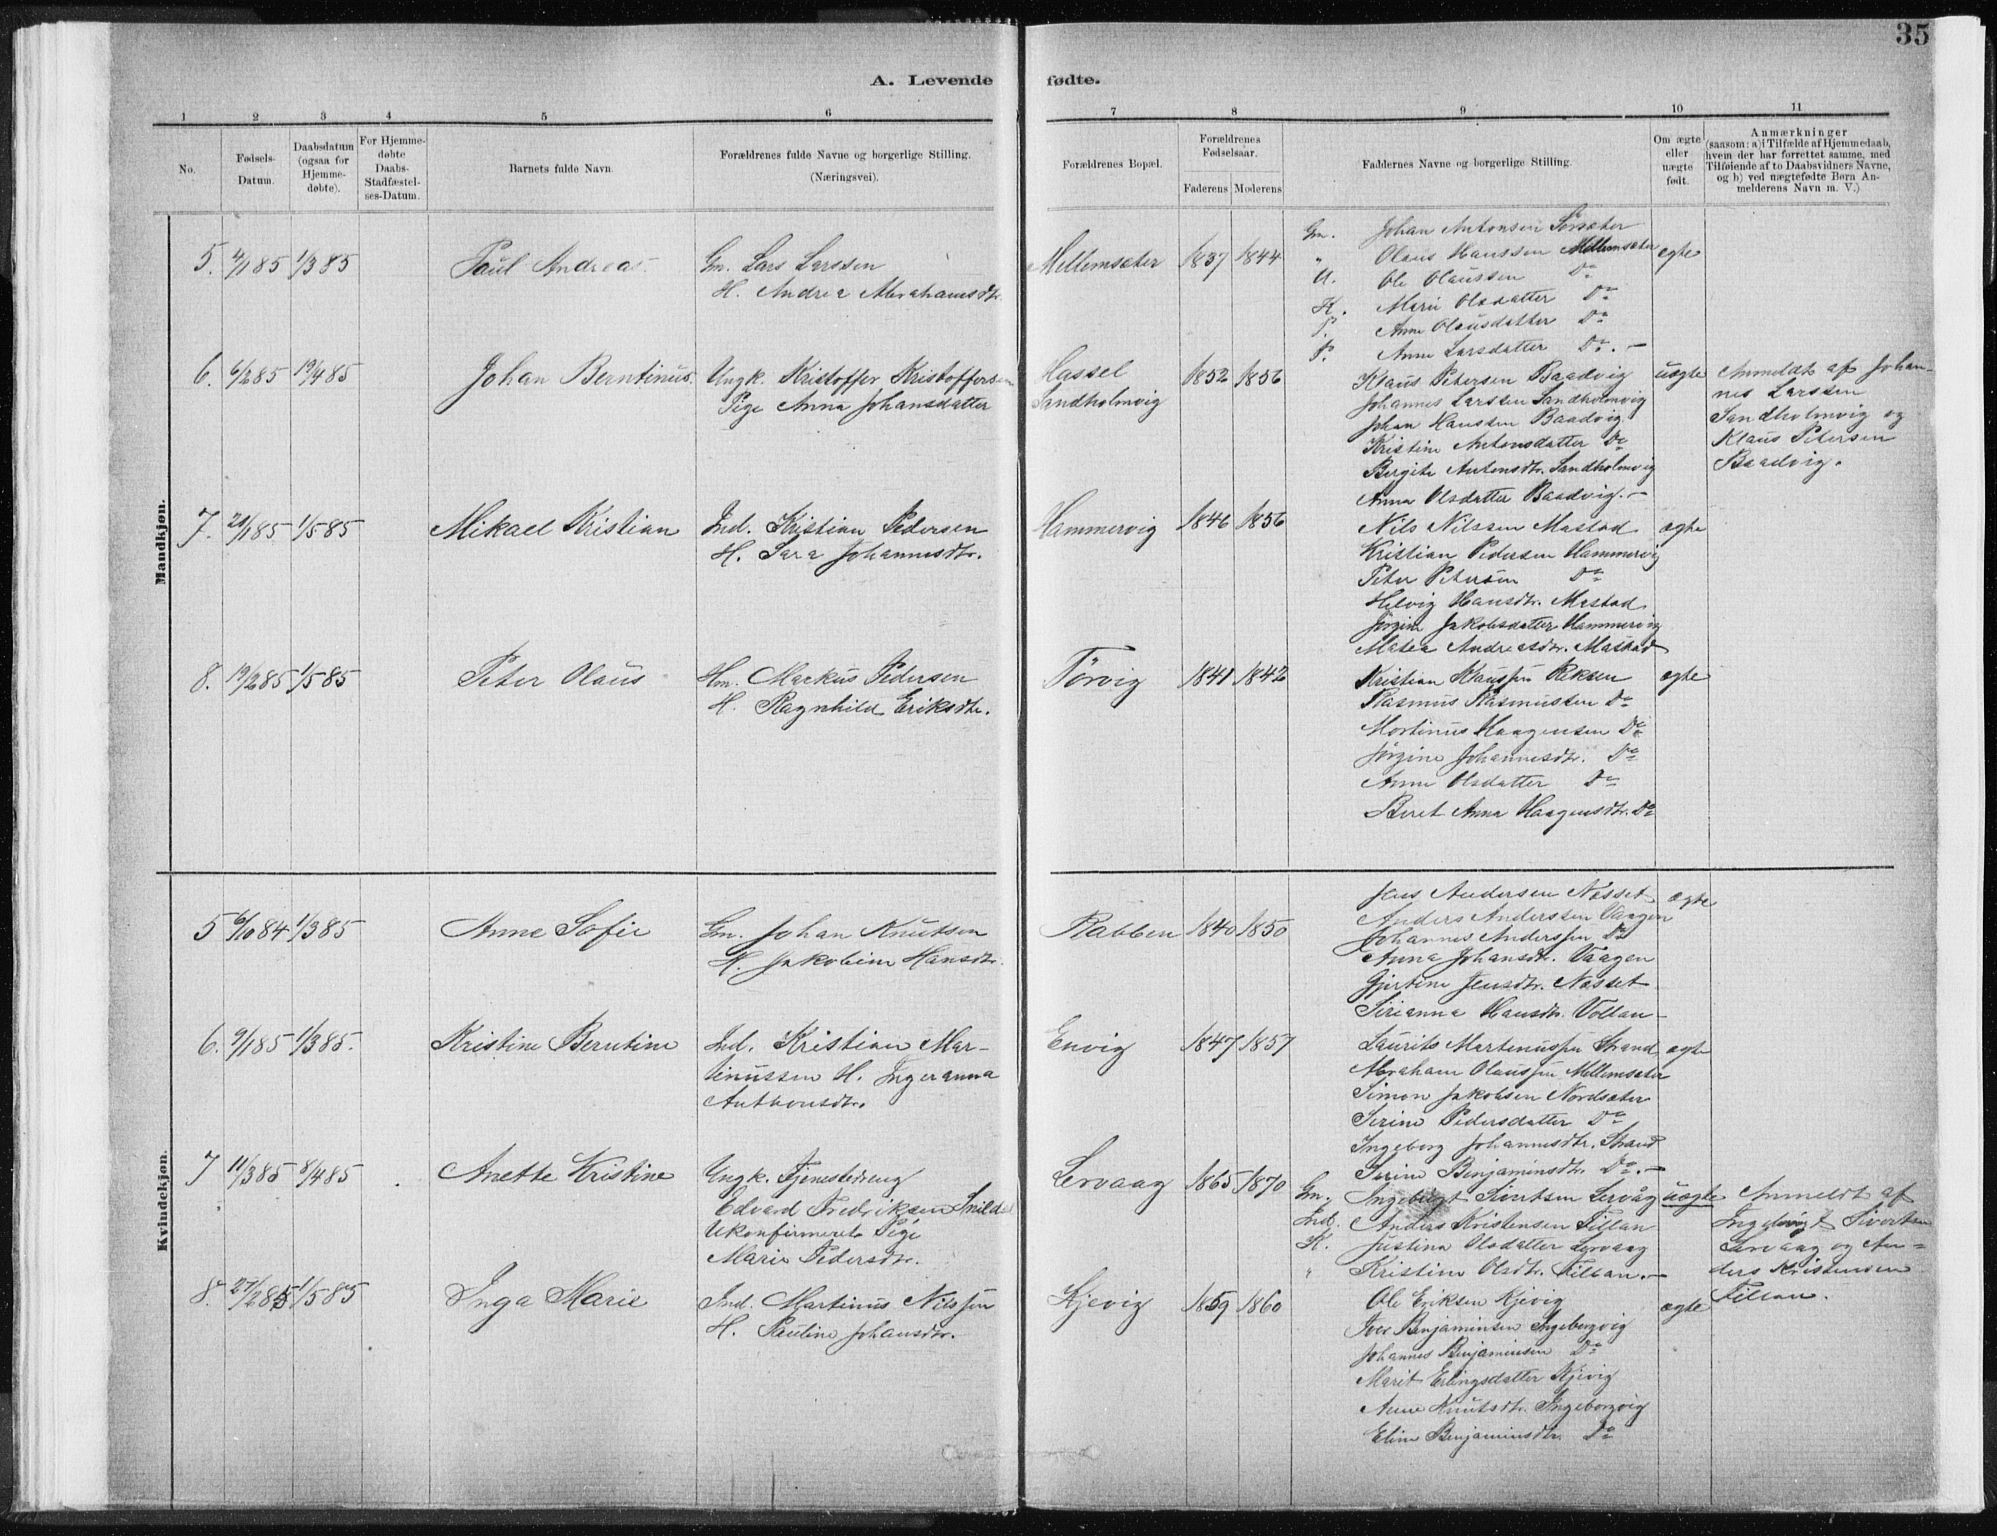 35
A. Levende fødte.
1 2 3 4 5 6 7 8 9 10 11
No.
Fødsels-
Datum.
Daabsdatum
(ogsaa for
Hjemme-
døbte).
For Hjemme-
døbte
Daabs-
Stadfæstel-
ses-Datum.
Barnets fulde Navn.
Forældrenes fulde Navne og borgerlige Stilling.
(Næringsvei).
Forældrenes Bopæl.
Forældrenes
Fødselsaar.
Faderens Moderens
Faddernes Navne og borgerlige Stilling.
Om ægte
eller
uægte
født.
Anmærkninger
(saasom: a) i Tilfælde af Hjemmedaab,
hvem der har forrettet samme, med
Tilføiende af to Daabsvidners Navne,
og b) ved uægtefødte Børn An-
melderens Navn m. V.)
Mandkjøn.
5. 4/1 85 1/3 85 Paul Andreas
Gm. Lars Larssen
H. Andrea Abrahamsdtr.
Mellemsæter 1837 1844
Gm. Johan Antonsen Sørsæter
" Olaus Hanssen Mellemsæter
U. Ole Olaussen Do
K. Marie Olsdatter Do
P. Anne Olausdatter Do
P. Anne Larsdatter Do. -
ægte
6. 6/2 85 19/4 85 Johan Berntinus.
Ungk. Kristoffer Kristoffersen
Pige Anna Johansdatter
Hassel
Sandholmvig
1852 1856
Klaus Petersen Baadvig
Johannes Larssen Sandholmvig
Johan Hanssen Baadvig
Kristine Antonsdatter Do
Bergite Antonsdtr. Sandholmvig
Anna Olsdatter Baadvig. -
uægte
Anmeldt af Johan-
nes Larssen
Sandholmvig og
Klaus Petersen
Baadvig.
7. 20/1 85 1/5 85 Mikael Kristian
Ind. Kristian Pedersen
H. Sara Johannesdtr.
Hammervig 1846 1856
Nils Nilssen Mastad
Kristian Pedersen Hammervig
Peter Petersen Do
Helvig Hansdtr. Mastad
Jørgine Jakobsdatter Hammervig
Matea Andreasdtr. Mastad
ægte
8. 19/2 85 1/5 85 Peter Olaus
Hm. Markus Pedersen
H. Ragnhild Eriksdtr.
Tørvig 1841 1842
Kristian Hanssen Reksen
Rasmus Rasmussen Do
Mortinus Haagensen Do
Jørgine Johannesdtr. Do
Anne Olsdatter Do
Beret Anna Haagensdtr. Do
ægte
Kvindekjøn.
5 6/10 84 1/3 85 Anne Sofie
Gm. Johan Knutsen
H. Jakobine Hansdtr.
Rabben 1840 1850
Jens Andersen Næsset
Anders Anderssen Vaagen
Johannes Anderssen Do
Anna Johansdtr. Vaagen
Gjertine Jensdtr. Næsset
Sirianna Hansdtr. Vollan -
ægte
6. 9/1 85 1/3 85. Kristine Berntine
Ind. Kristian Mar-
tinussen H. Ingeranna
Anthonsdtr.
Envig 1847 1857
Laurits Martinussen Strand
Abraham Olaussen Mellemsæter
Simon Jakobsen Nordsæter
Serine Pedersdatter Do
Ingeborg Johannesdtr. Strand
Serine Benjaminsdtr. Do. -
ægte
7 11/3 85 8/4 85 Anette Kristine
Ungk. Tjenestedreng
Edvard Fredriksen Snilld
Ukonfirmeret Pige
Marie Pedersdtr.
Lervaag 1865 1870
Gm. Ingebrigt Sivertsen Lervåg
Ind. Anders Kristensen Fillan
K. Justina Olsdatter Lervaag
" Kristine Olsdtr. Fillan. -
uægte
Anmeldt af
Ingebrigt Sivertsen
Lervaag og An-
ders Kristensen
Fillan.
8. 27/2 85 1/5 85 Inga Marie
Ind. Martinus Nilssen
H. Pauline Johansdtr.
Kjevig 1859 1860
Ole Eriksen Kjevig
Iver Benjaminsen Ingeborgvig
Johannes Benjaminsen Do
Marit Erlingsdatter Kjevig
Anne Knutsdtr. Ingeborgvig
Eline Benjaminsdtr. Do
ægte